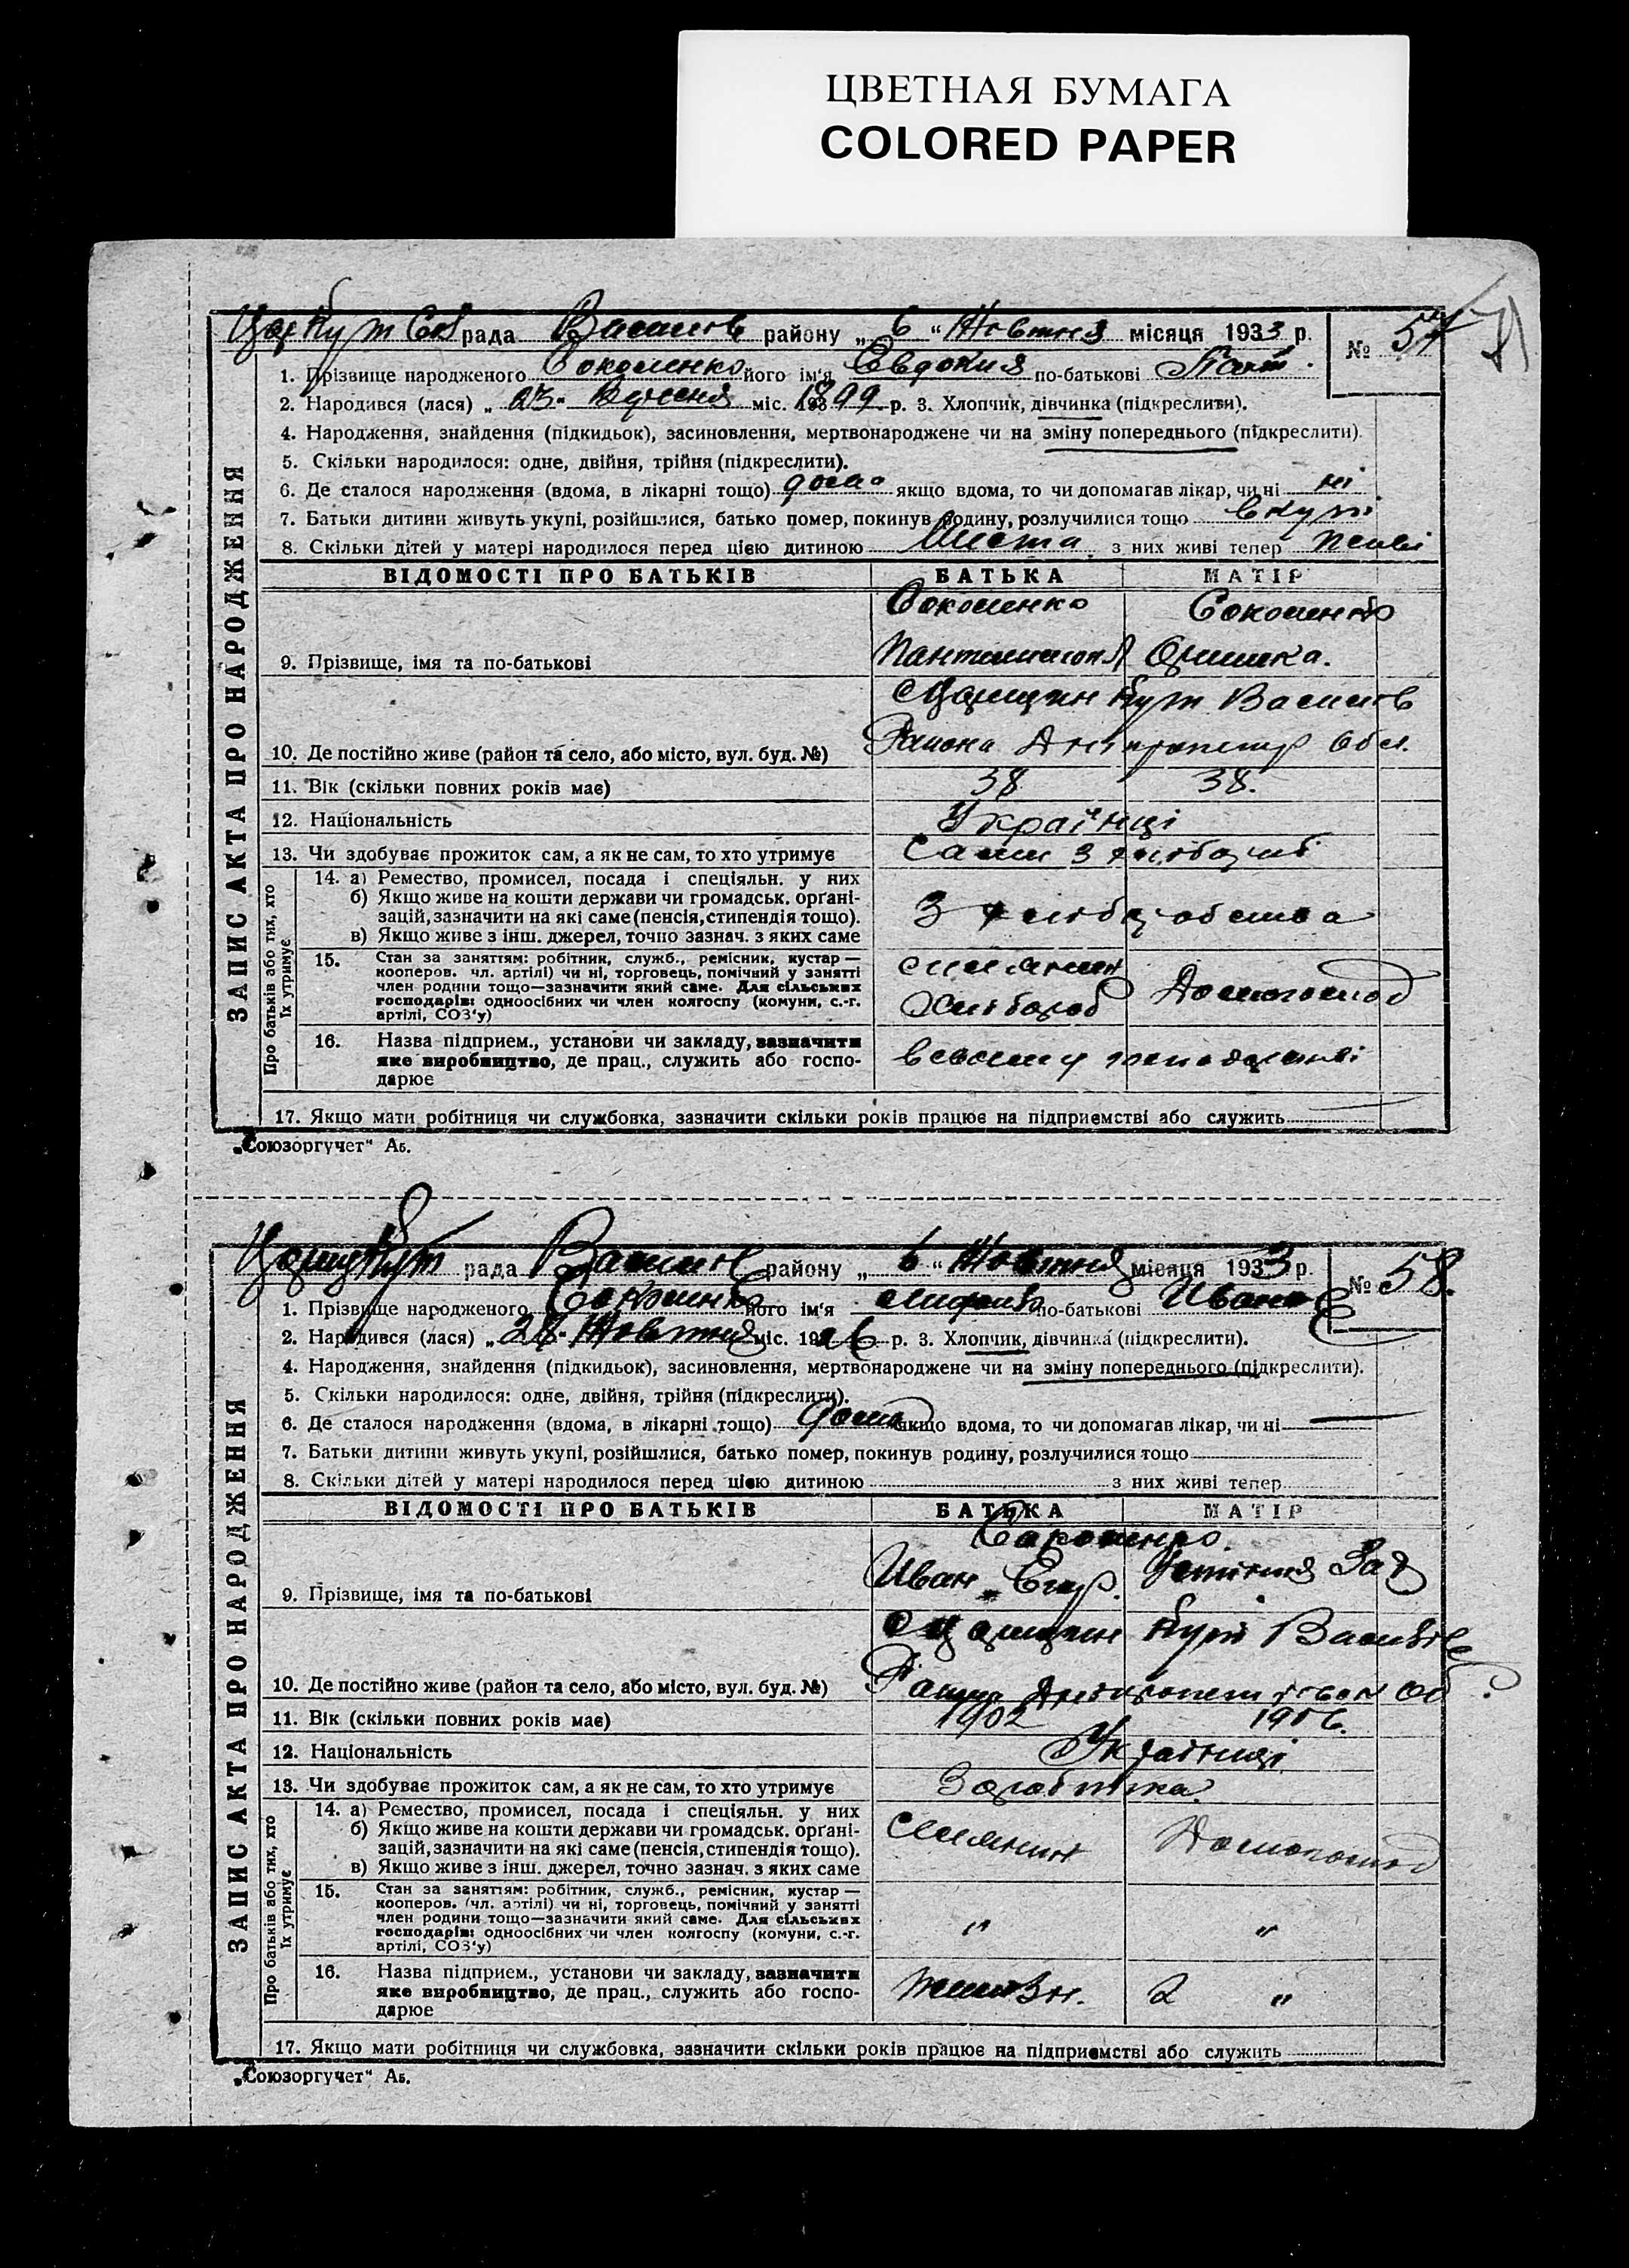 ЦВЕТНАЯ БУМАГА
COLORED PAPER
рада району „ 6 “ Жовтня місяця 1933 р.
№ 57
1. Прізвище народженого Соколенко його ім'я Евдокия по-батькові Пант.
2. Народився (лася) „ 23 " Вересня міс. 1899 р. 3. Хлопчик, дівчинка (підкреслити).
4. Народження, знайдення (підкидьок), засиновлення, мертвонароджене чи на зміну попереднього (підкреслити).
5. Скільки народилося: одне, двійня, трійня (підкреслити).
6. Де сталося народження (вдома, в лікарні тощо) дома якщо вдома, то чи допомагав лікар, чи ні ні
7. Батьки дитини живуть укупі, розійшлися, батько помер, покинув родину, розлучилися тощо вкупі
8. Скільки дітей у матері народилося перед цією дитиною з них живі тепер
ЗАПИС АКТА ПРО НАРОДЖЕННЯ
ВІДОМОСТІ ПРО БАТЬКІВ БАТЬКА МАТІР
Соколенко Соколенко
9. Прізвище, імя та по-батькові
Царицин Кут Василів
10. Де постійно живе (район та село, або місто, вул. буд. №) Района Дніпропетр Обл.
11. Вік (скільки повних років має) 38 38.
12. Національність Українці
13. Чи здобуває прожиток сам, а як не сам, то хто утримує Сами з
Про батьків або тих, хто їх утримує
14. а) Ремество, промисел, посада і спеціяльн. у них
б) Якщо живе на кошти держави чи громадськ. орґані-
зацій, зазначити на які саме (пенсія, стипендія тощо). З хлібробства
в) Якщо живе з інш. джерел, точно зазнач. з яких саме
15. Стан за заняттям: робітник, служб., ремісник, кустар — селянин
кооперов. чл. артілі) чи ні, торговець, помічний у занятті
член родини тощо—зазначити який саме. Для сільських Домогоспод
господарів: одноосібних чи член колгоспу (комуни, с.-г. Хлібороб
артілі, СОЗ'у)
16. Назва підприєм., установи чи закладу, зазначити
яке виробництво, де прац., служить або госпо-
дарює
17. Якщо мати робітниця чи службовка, зазначити скільки років працює на підприємстві або служить
„Союзоргучет“ Аб.
рада району „ 6 “ Жовтня місяця 1933 р.
№ 58.
1. Прізвище народженого його ім'я по-батькові Ивано
2. Народився (лася) „ 28 " Жовтня міс. 1926 р. 3. Хлопчик, дівчинка (підкреслити).
4. Народження, знайдення (підкидьок), засиновлення, мертвонароджене чи на зміну попереднього (підкреслити).
5. Скільки народилося: одне, двійня, трійня (підкреслити).
6. Де сталося народження (вдома, в лікарні тощо) дома якщо вдома, то чи допомагав лікар, чи ні
7. Батьки дитини живуть укупі, розійшлися, батько помер, покинув родину, розлучилися тощо
8. Скільки дітей у матері народилося перед цією дитиною з них живі тепер
ЗАПИС АКТА ПРО НАРОДЖЕННЯ
ВІДОМОСТІ ПРО БАТЬКІВ БАТЬКА МАТІР
9. Прізвище, імя та по-батькові Иван
Царицин Кут
10. Де постійно живе (район та село, або місто, вул. буд. №)
11. Вік (скільки повних років має) 1902 1906.
12. Національність Українці
13. Чи здобуває прожиток сам, а як не сам, то хто утримує
Про батьків або тих, хто їх утримує
14. а) Ремество, промисел, посада і спеціяльн. у них
б) Якщо живе на кошти держави чи громадськ. орґані- Селянин Домогоспод
зацій, зазначити на які саме (пенсія, стипендія тощо).
в) Якщо живе з інш. джерел, точно зазнач. з яких саме
15. Стан за заняттям: робітник, служб., ремісник, кустар —
кооперов. (чл. артілі) чи ні, торговець, помічний у занятті
член родини тощо—зазначити який саме. Для сільських " "
господарів: одноосібних чи член колгоспу (комуни, с.-г.
артілі, СОЗ'у)
16. Назва підприєм., установи чи закладу, зазначити
яке виробництво, де прац., служить або госпо- 2 "
дарює
17. Якщо мати робітниця чи службовка, зазначити скільки років працює на підприємстві або служить
„Союзоргучет“ Аб.